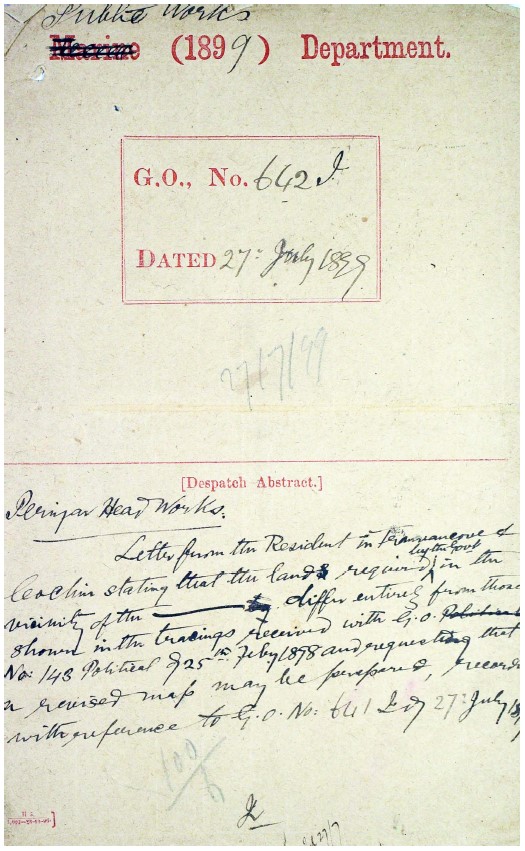 Public Works
Marine (1899) Department.
G.O., No. 642 I.
DATED 27: July 1899
27/7/99
[Despatch Abstract.]
Periyar Head Works.
Letter from the Resident in Travancore &
by the Govt
Cochin stating that the lands required in the
vicinity of the differ entirely from those
shown in the tracings received with G.O. Political
No: 143 Political of 25th Feby 1898 and requesting that
a revised map may be prepared, recorded
with reference to G.O. No: 641 I of 27: July 1899
100/6
I